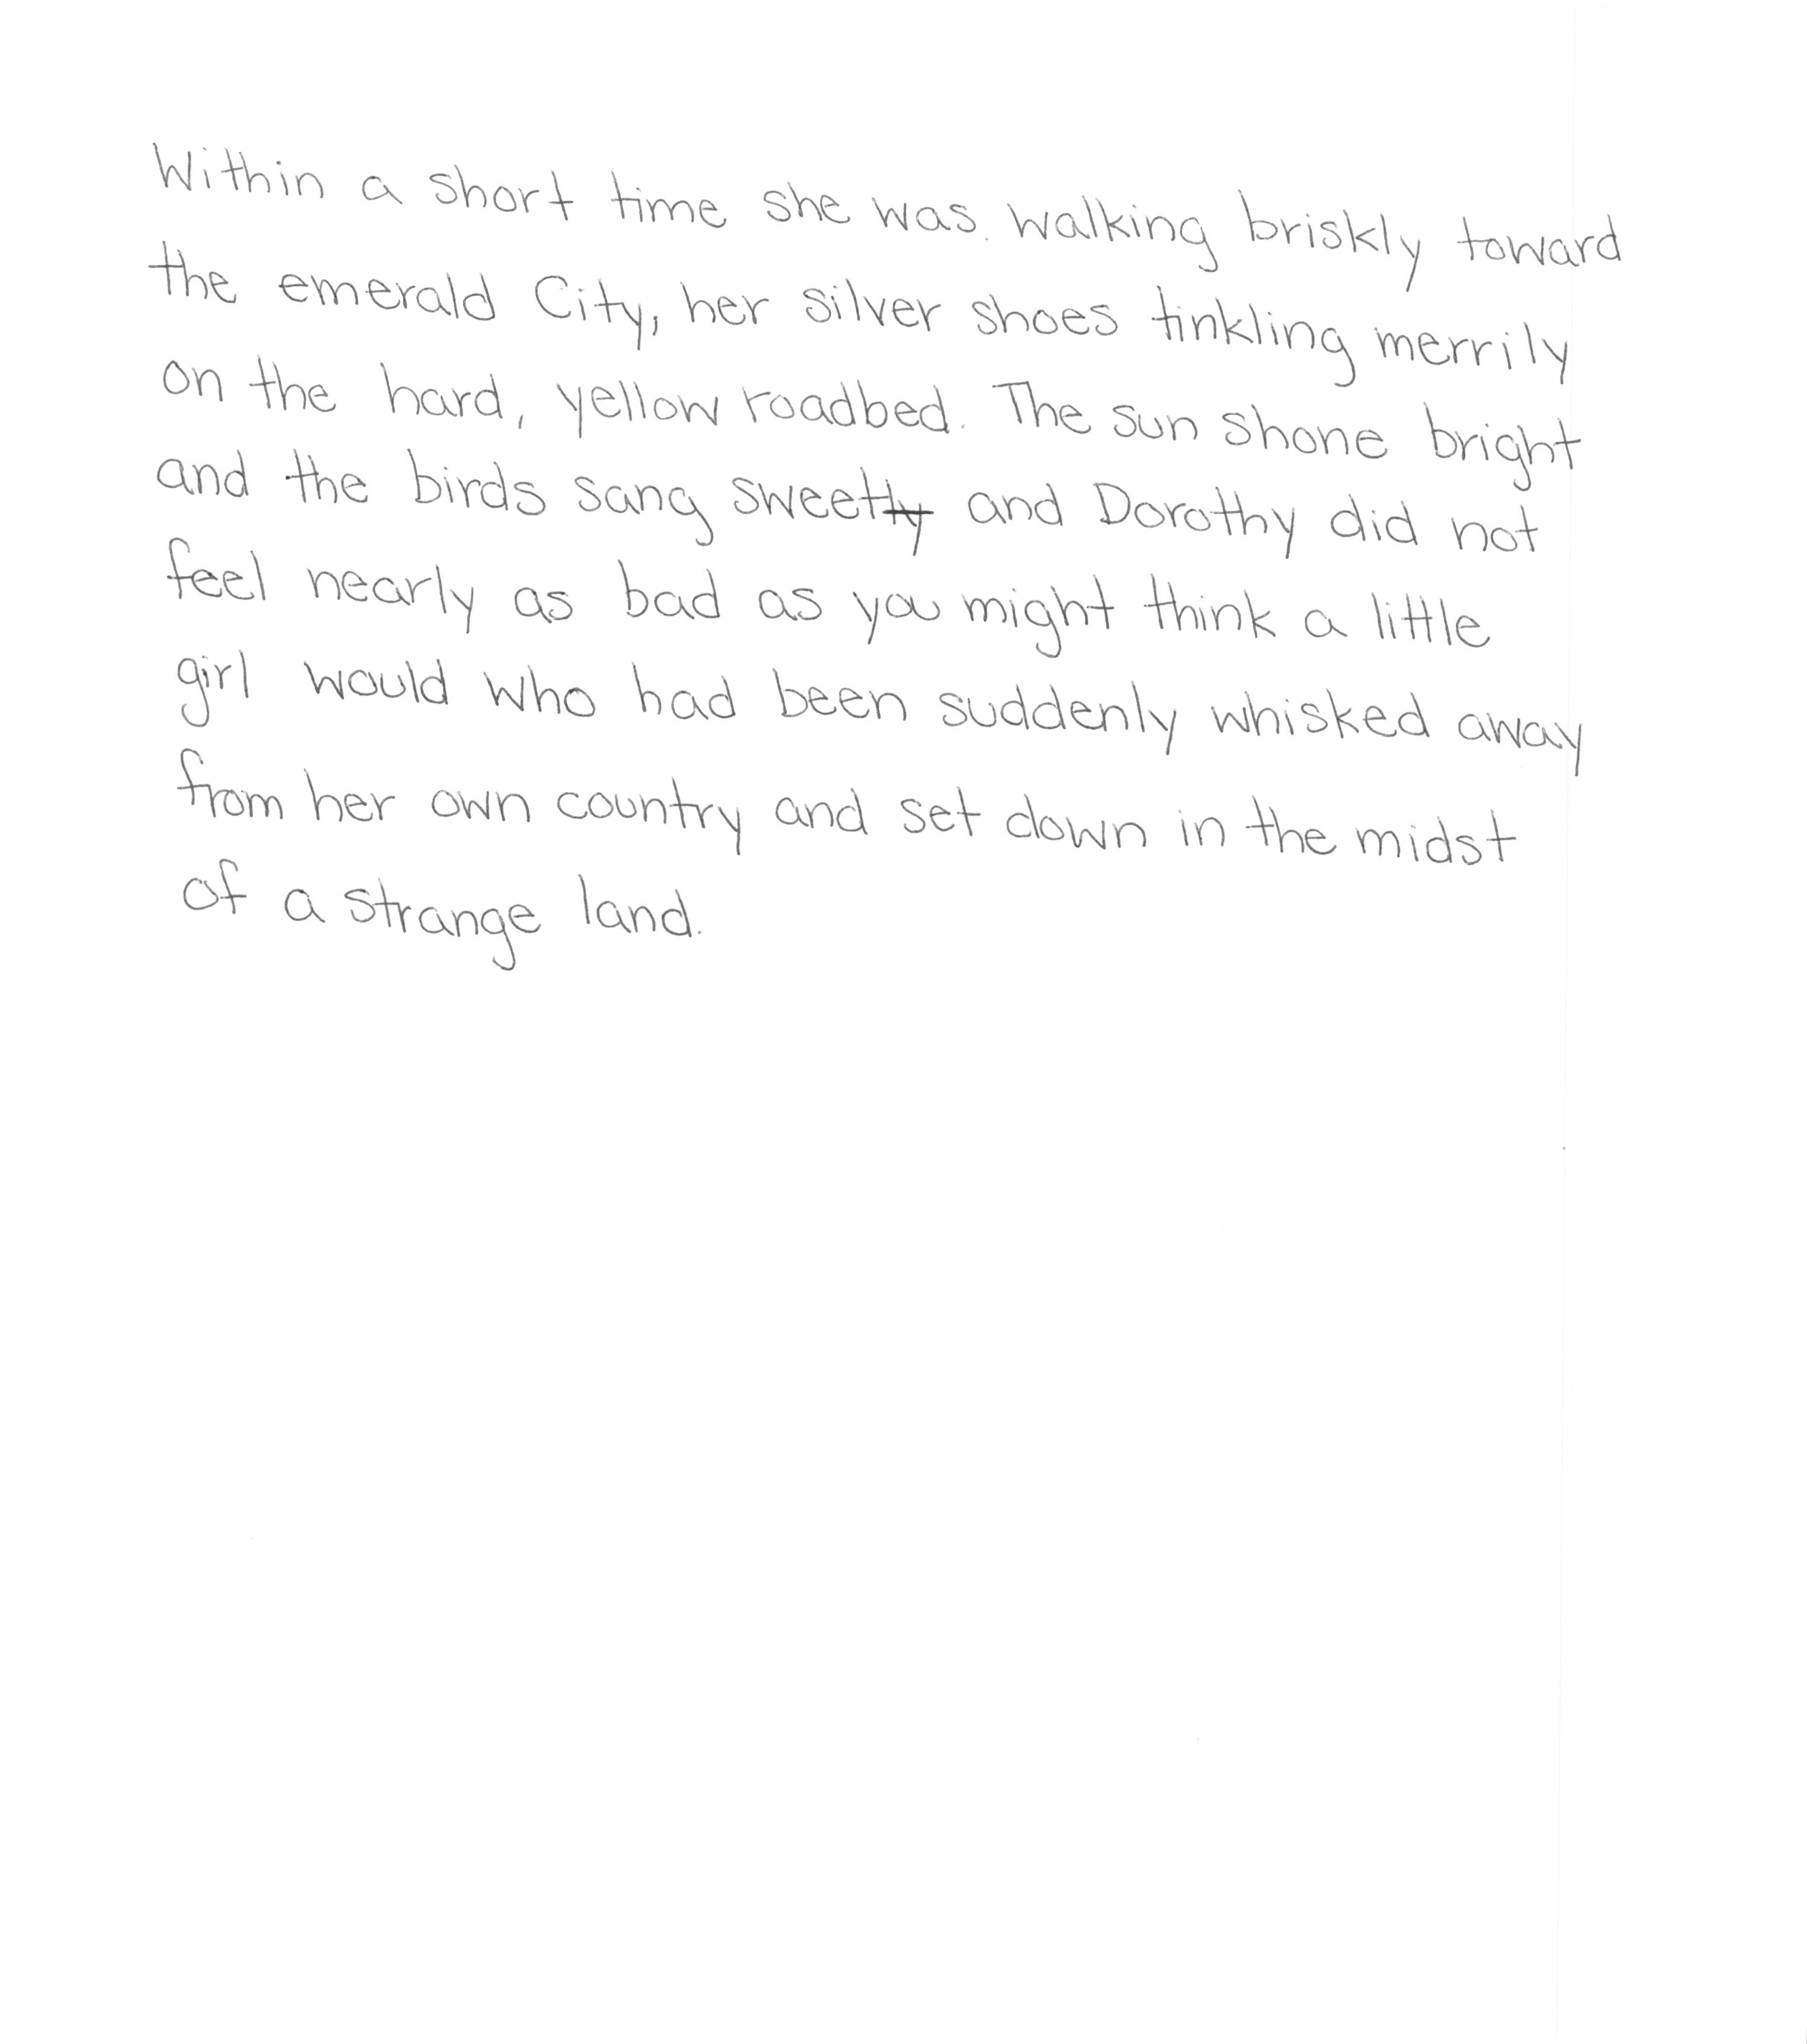 Within a short time she was walking briskly toward
the emerald City, her silver shoes tinkling merrily
on the hard, yellow roadbed. The sun shone bright
and the birds sang sweet and Dorothy did not
feel nearly as bad as you might think a little
girl would who had been suddenly whisked away
from her own country and set down in the midst
of a strange land.